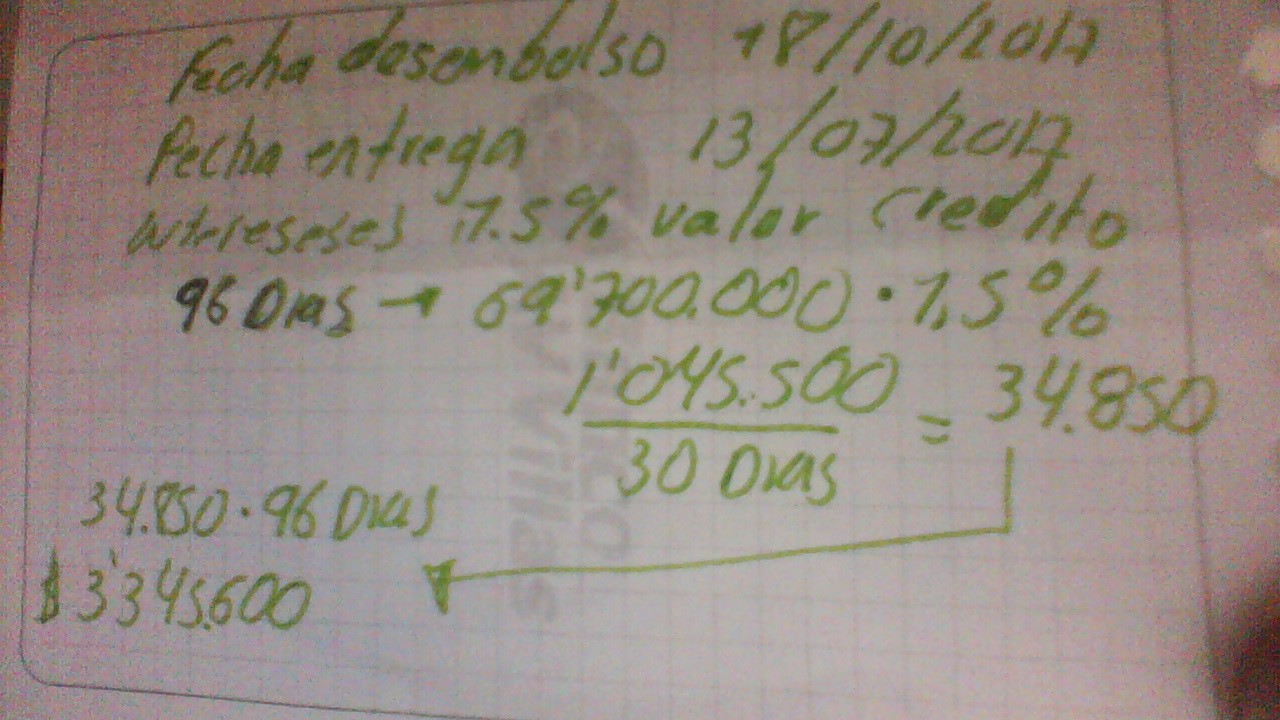 Fecha desembolso 18/10/2017
Fecha entrega 13/07/2017
Intereseses 1.5% valor credito
96 Dias → 69'700.000 · 1,5%
1'045.500 = 34.850
30 Dias
34.850 · 96 Dias
$3'345.600
Villas